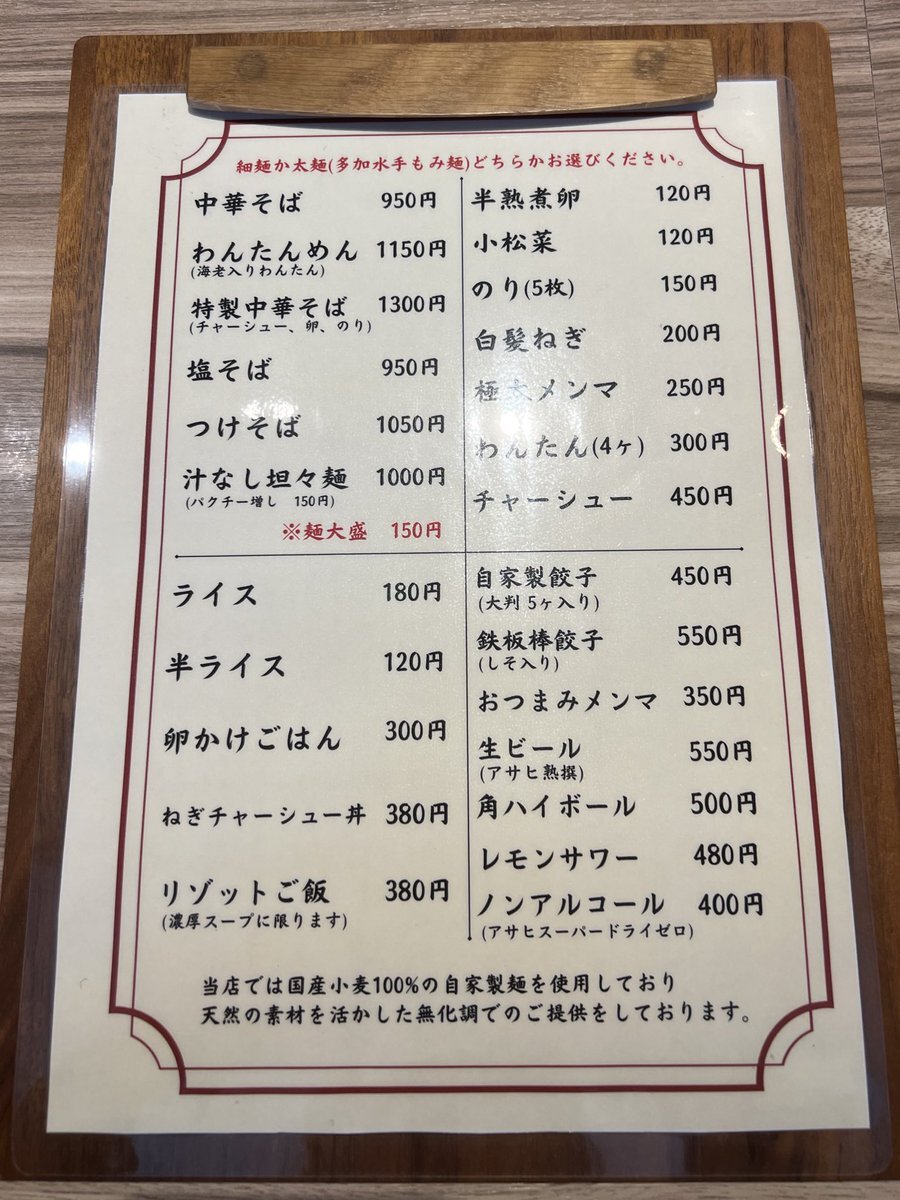 細麺か太麺(多加水手もみ麺)どちらかお選びください。
中華そば 950円
わんたんめん 1150円
(海老入りわんたん)
特製中華そば 1300円
(チャーシュー、卵、のり)
塩そば 950円
つけそば 1050円
汁なし坦々麺 1000円
(パクチー増し 150円)
※麺大盛 150円
半熟煮卵 120円
小松菜 120円
のり(5枚) 150円
白髪ねぎ 200円
極太メンマ 250円
わんたん(4ヶ) 300円
チャーシュー 450円
ライス 180円
半ライス 120円
卵かけごはん 300円
ねぎチャーシュー丼 380円
リゾットご飯 380円
(濃厚スープに限ります)
自家製餃子 450円
(大判 5ヶ入り)
鉄板棒餃子 550円
(しそ入り)
おつまみメンマ 350円
生ビール 550円
(アサヒ熟撰)
角ハイボール 500円
レモンサワー 480円
ノンアルコール 400円
(アサヒスーパードライゼロ)
当店では国産小麦100%の自家製麺を使用しており
天然の素材を活かした無化調でのご提供をしております。